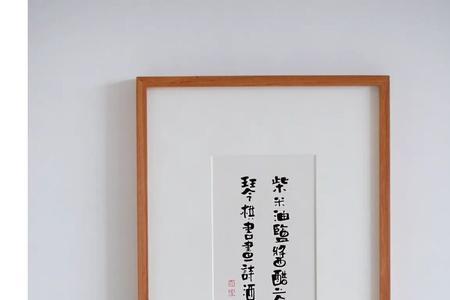 柴米油鹽醬醋
琴棋書畫詩酒